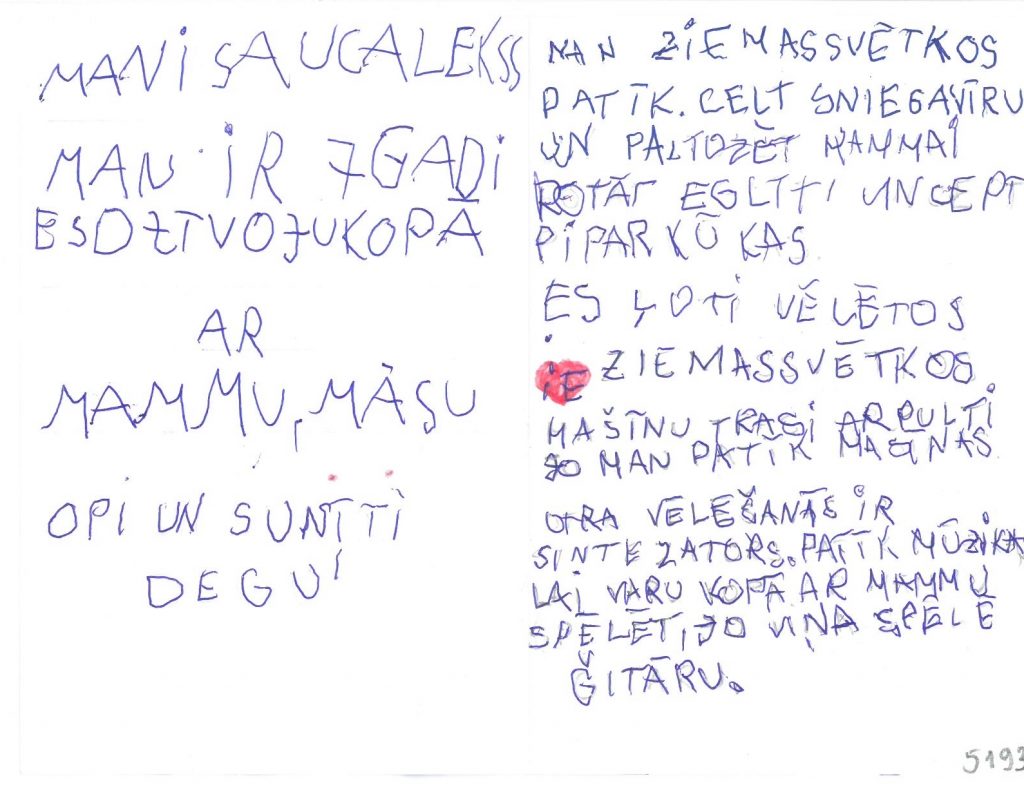 MANI SAUC ALEKSS
MAN IR 7 GADI
ES DZTVOJU KOPĀ
AR
MAMMU, MĀSU
OPI UN SUNĪTI
DEGU
MAN ZIEMASSVĒTKOS
PATĪK. CELT SNIEGAVĪRU
UN PALĪDZĒT MAMMAI
ROTĀT EGLĪTI UN CEPT
PIPARKŪKAS
ES ĻOTI VĒLĒTOS
IE ZIEMASSVĒTKOS.
MAŠĪNU TRASI AR PULTI
JO MAN PATĪK MAŠĪNAS
OTRA VELEŠANĀS IR
SINTEZATORS. PATĪK MŪZIKA
LAI VARU KOPĀ AR MAMMU
SPĒLĒT, JO VIŅA SPĒLĒ
ĞITĀRU.
5193